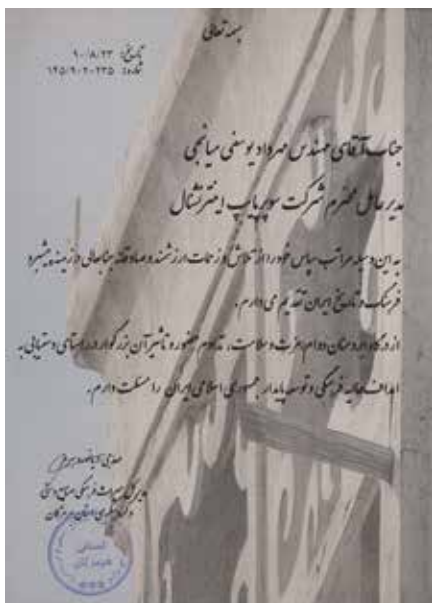 بسمه تعالی
تاریخ: ۹۰/۸/۲۳
شماره: ۱۴۵/۹۰۲۰۲۳۵
جناب آقای مهندس مهرداد یوسفی میانجی
مدیر عامل محترم شرکت سوپر پایپ اینترنشنال
به این وسیله مراتب سپاس خود را از تلاش و زحمات ارزشمند و صادقانه جنابعالی در زمینه پیشبرد
فرهنگ و تاریخ ایران تقدیم می دارم.
از درگاه ایزد منان دوام عزت و سلامت، تداوم حضور و تاثیر آن بزرگوار در راستای دستیابی به
اهداف عالیه فرهنگی و توسعه پایدار جمهوری اسلامی ایران را مسئلت دارم.
مدیر کل میراث فرهنگی، صنایع دستی
و گردشگری استان هرمزگان
استانداری
هرمزگان